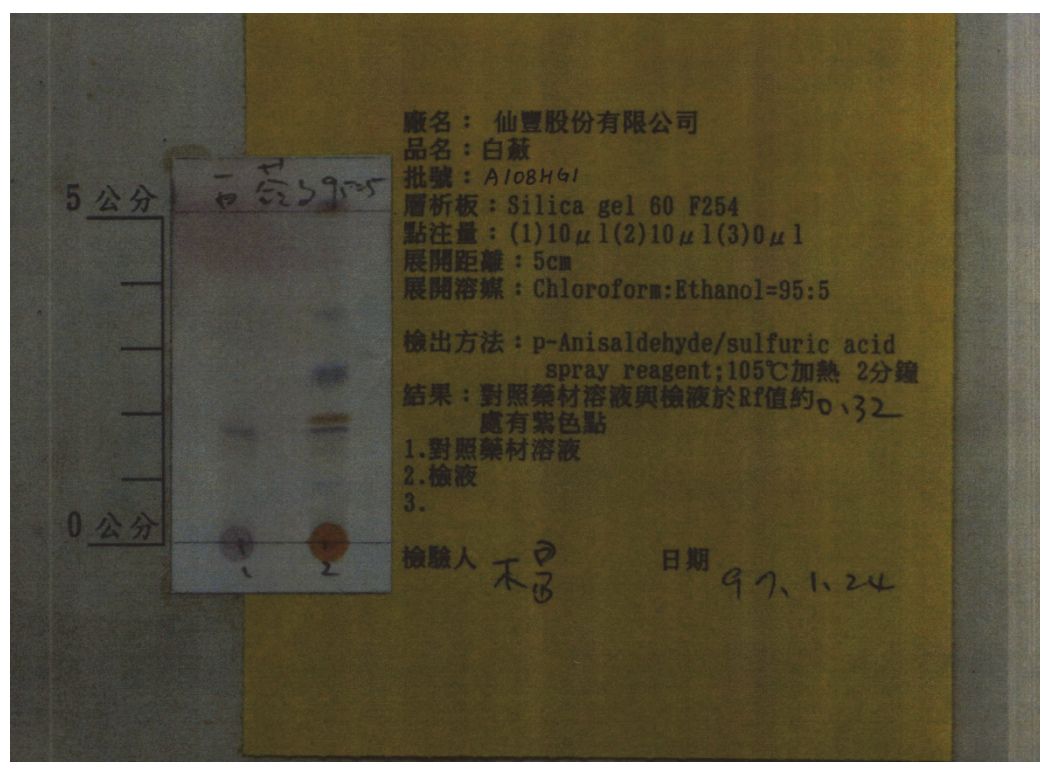 廠名： 仙豐股份有限公司
品名：白蘞
批號：A108HG1
層析板：Silica gel 60 F254
點注量：(1)10μl(2)10μl(3)0μl
展開距離：5cm
展開溶媒：Chloroform:Ethanol=95:5
檢出方法：p-Anisaldehyde/sulfuric acid
spray reagent;105℃加熱 2分鐘
結果：對照藥材溶液與檢液於Rf值約0.32
處有紫色點
1.對照藥材溶液
2.檢液
3.
檢驗人 日期 97.1.24
95:5
5 公分
0 公分
1 2